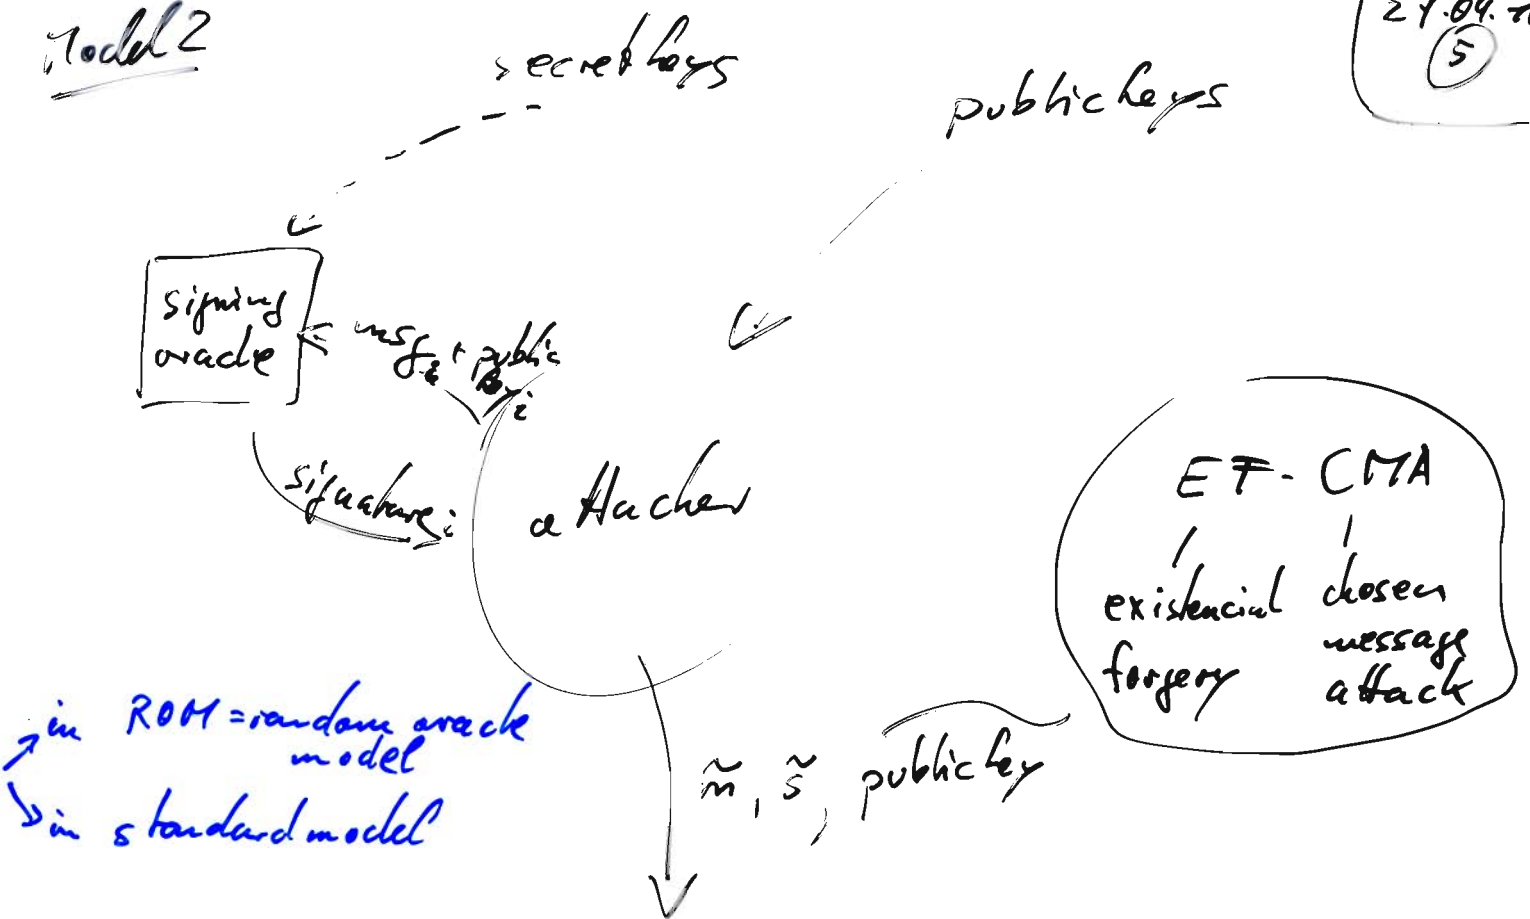 Model 2
secret keys
public keys
5
signing
oracle
msg_i + public
key_i
signature_i
attacker
EF-CMA
existencial
forgery
chosen
message
attack
in ROM = random oracle
model
in standard model
m̃, s̃, public key